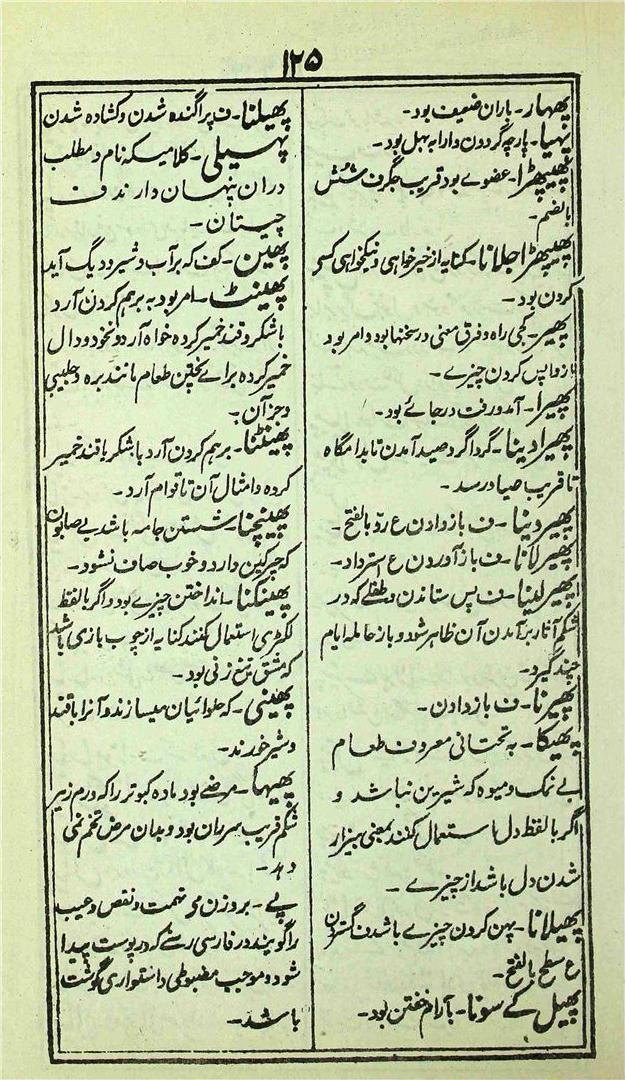 ۱۲۵
پھہار۔ باران ضعیف بود۔
پہیا۔ پارچہ گردون وارابہ بہل بود۔
پھیپھڑا۔ عضوے بود قریب جگر ف شش
بالضم۔
پھیپھڑا جلانا۔ کنایہ از خیر خواہی و نیکخواہی کسی
کردن بود۔
پھیر۔ کجی راہ و فرق معنی در سخنہا بود و امر بود
باز واپس کردن چیزے۔
پھیرا۔ آمد و رفت در جائے بود۔
پھیرا دینا۔ گرداگرد صید آمدن تا بدامگاہ
تا قریب صیاد رسد۔
پھیر دینا۔ ف باز دادن ع ردّ بالفتح۔
پھیر لانا۔ ف باز آوردن ع سترداد۔
پھیر لینا۔ ف پس ستاندن و طفلے کہ در
شکم آثار بر آمدن آن ظاہر شود و باز حاملہ ایام
چند گیرد۔
پھیرنا۔ ف باز دادن۔
پھیکا۔ بہ تحتانی معروف طعام
بے نمک و میوہ کہ شیرین نباشد و
اگر با لفظ دل استعمال کنند بمعنی بیزار
شدن دل باشد از چیزے۔
پھیلانا۔ پہن کردن چیزے باشد ف گستردن
ع سطح بالفتح۔
پھیل کے سونا۔ بآرام خفتن بود۔
پھیلنا۔ ف پراگندہ شدن و کشادہ شدن
پہیلی۔ کلامیکہ نام و مطلب
دران پنہان دارند ف
چیستان۔
پھین۔ کف کہ بر آب و شیر و دیگ آید
پھینٹ۔ امر بود بہ برہم کردن آرد
با شکر و قند خمیر کردہ خواہ آرد و نخود و دال
خمیر کردہ براے پختن طعام مانند برہ و جلیبی
و جز آن۔
پھینٹنا۔ برہم کردن آرد با شکر یا قند خمیر
کردہ و امثال آن تا قوام آرد۔
پھینچنا۔ شستن جامہ باشد بے صابون
کہ چرکین دارد و خوب صاف نشود۔
پھینکنا۔ انداختن چیزے بود و اگر با لفظ
لکڑی استعمال کنند کنایہ از چوب بازی باشد
کہ مشق تیغ زنی بود۔
پھینی۔ کہ حلوائیان میسازند و آنرا با قند
و شیر خورند۔
پھیہا۔ مرضے بود مادہ کبوتر را کہ ورم زیر
شکم قریب سرران بود و بدان مرض تخم نمی
دہد۔
پے۔ بر وزن مے تہمت و نقص و عیب
را گویند و در فارسی رسے کہ در پوست پیدا
شود و موجب مضبوطی و استواری گوشت
باشد۔